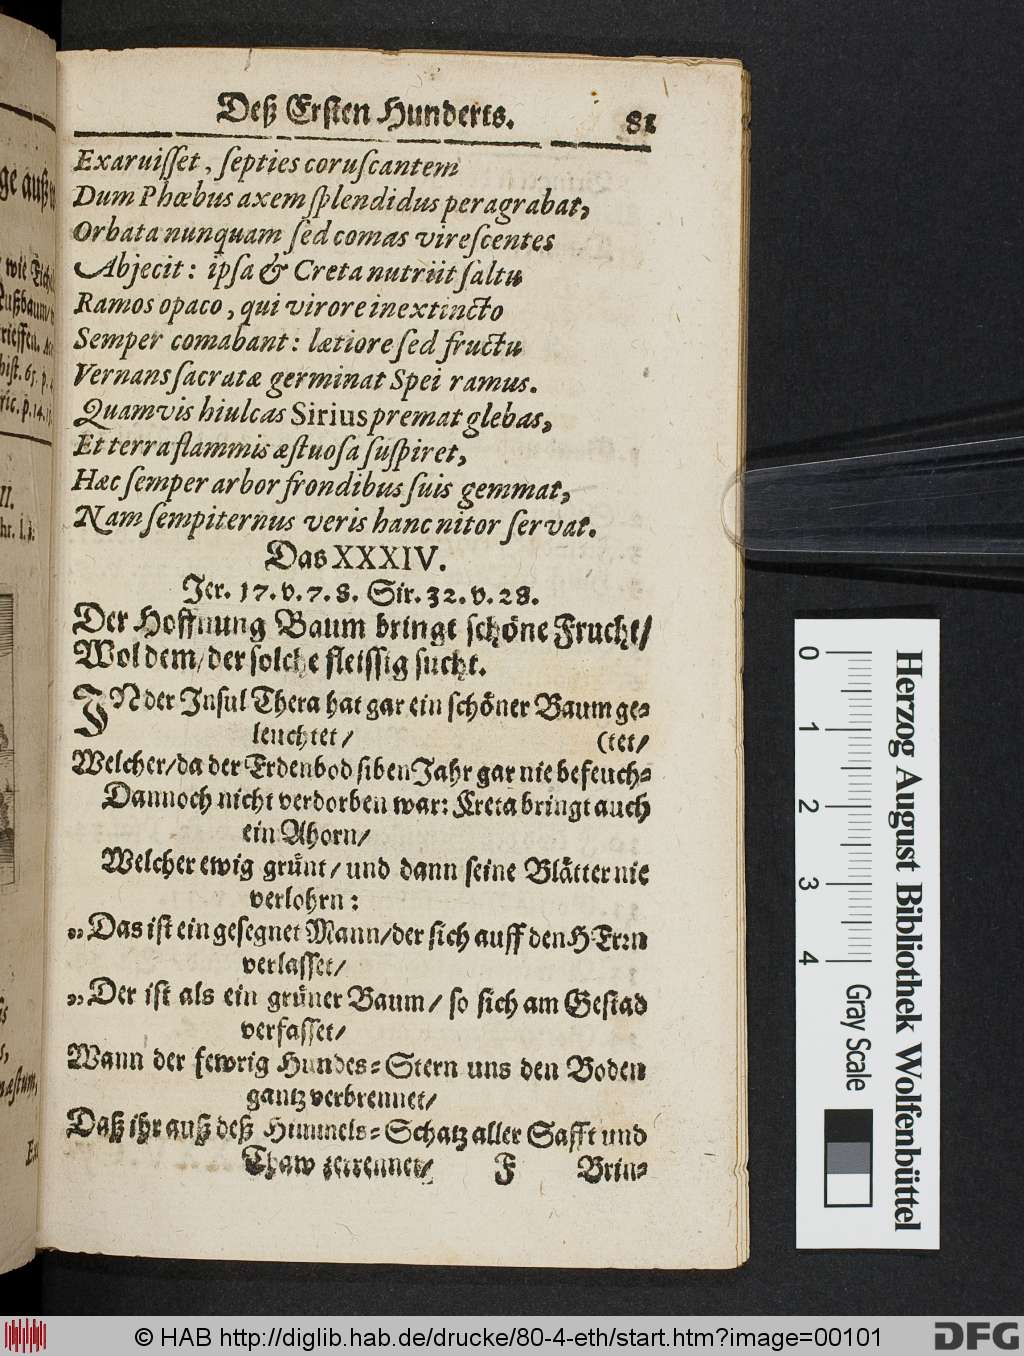 Deß Ersten Hunderts. 81
Exaruisset, septies coruscantem
Dum Phœbus axem splendidus peragrabat,
Orbata nunquam sed comas virescentes
Abjecit: ipsa & Creta nutriit saltu
Ramos opaco, qui virore inextincto
Semper comabant: lætiore sed fructu
Vernans sacratæ germinat Spei ramus.
Quamvis hiulcas Sirius premat glebas,
Et terra flammis æstuosa suspiret,
Hæc semper arbor frondibus suis gemmat,
Nam sempiternus veris hanc nitor servat.
Das XXXIV.
Jer. 17. v. 7. 8. Sir. 32. v. 28.
Der Hoffnung Baum bringt schöne Frucht/
Wol dem/ der solche fleissig sucht.
IN der Insul Thera hat gar ein schöner Baum ge-
leuchtet/ (tet/
Welcher/ da der Erdenbod siben Jahr gar nie befeuch-
Dannoch nicht verdorben war: Kreta bringt auch
ein Ahorn/
Welcher ewig grünt/ und dann seine Blätter nie
verlohrn:
„Das ist ein gesegnet Mann/ der sich auff den HErrn
verlasset/
„Der ist als ein grüner Baum/ so sich am Gestad
verfasset/
Wann der fewrig Hundes-Stern uns den Boden
gantz verbrennet/
Daß ihr auß deß Himmels-Schatz aller Safft und
Thaw zerrennet/ F Brin-
ge auß
wie Eich
Nußbaum
trieffen.
hist. 65. p.
ric. p. 14.
II.
hr. l.
æstum,
Ex
0 1 2 3 4
Herzog August Bibliothek Wolfenbüttel
Gray Scale
© HAB http://diglib.hab.de/drucke/80-4-eth/start.htm?image=00101
DFG